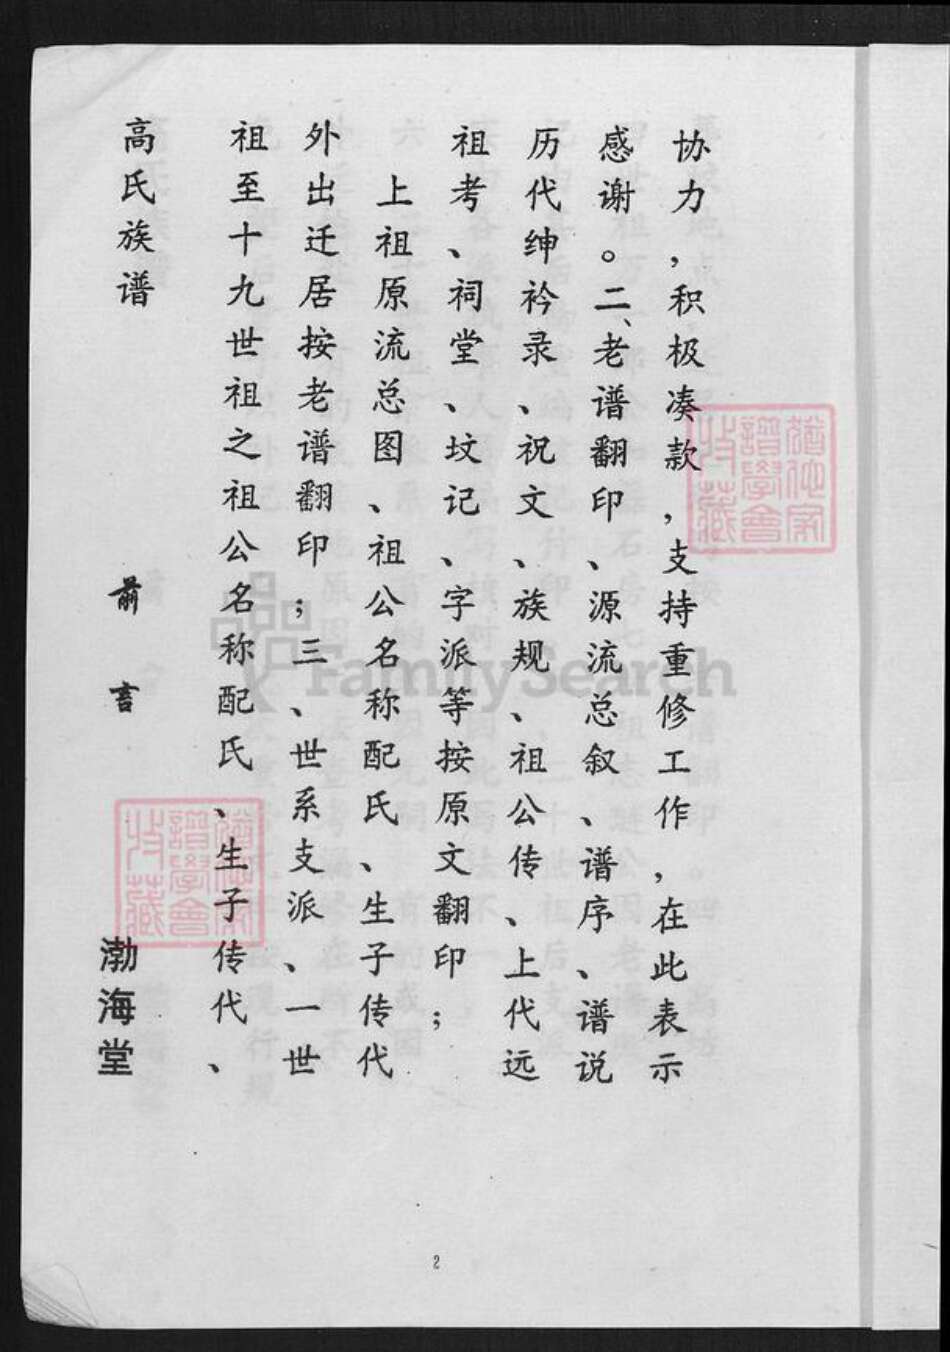 协力，积极凑款，支持重修工作，在此表示
感谢。二、老谱翻印、源流总叙、谱序、谱说
历代绅衿录、祝文、族规、祖公传、上代远
祖考、祠堂、坟记、字派等按原文翻印；
上祖原流总图、祖公名称配氏、生子传代
外出迁居按老谱翻印；三、世系支派、一世
祖至十九世祖之祖公名称配氏、生子传代、
高氏族谱 前言 渤海堂
FamilySearch
2